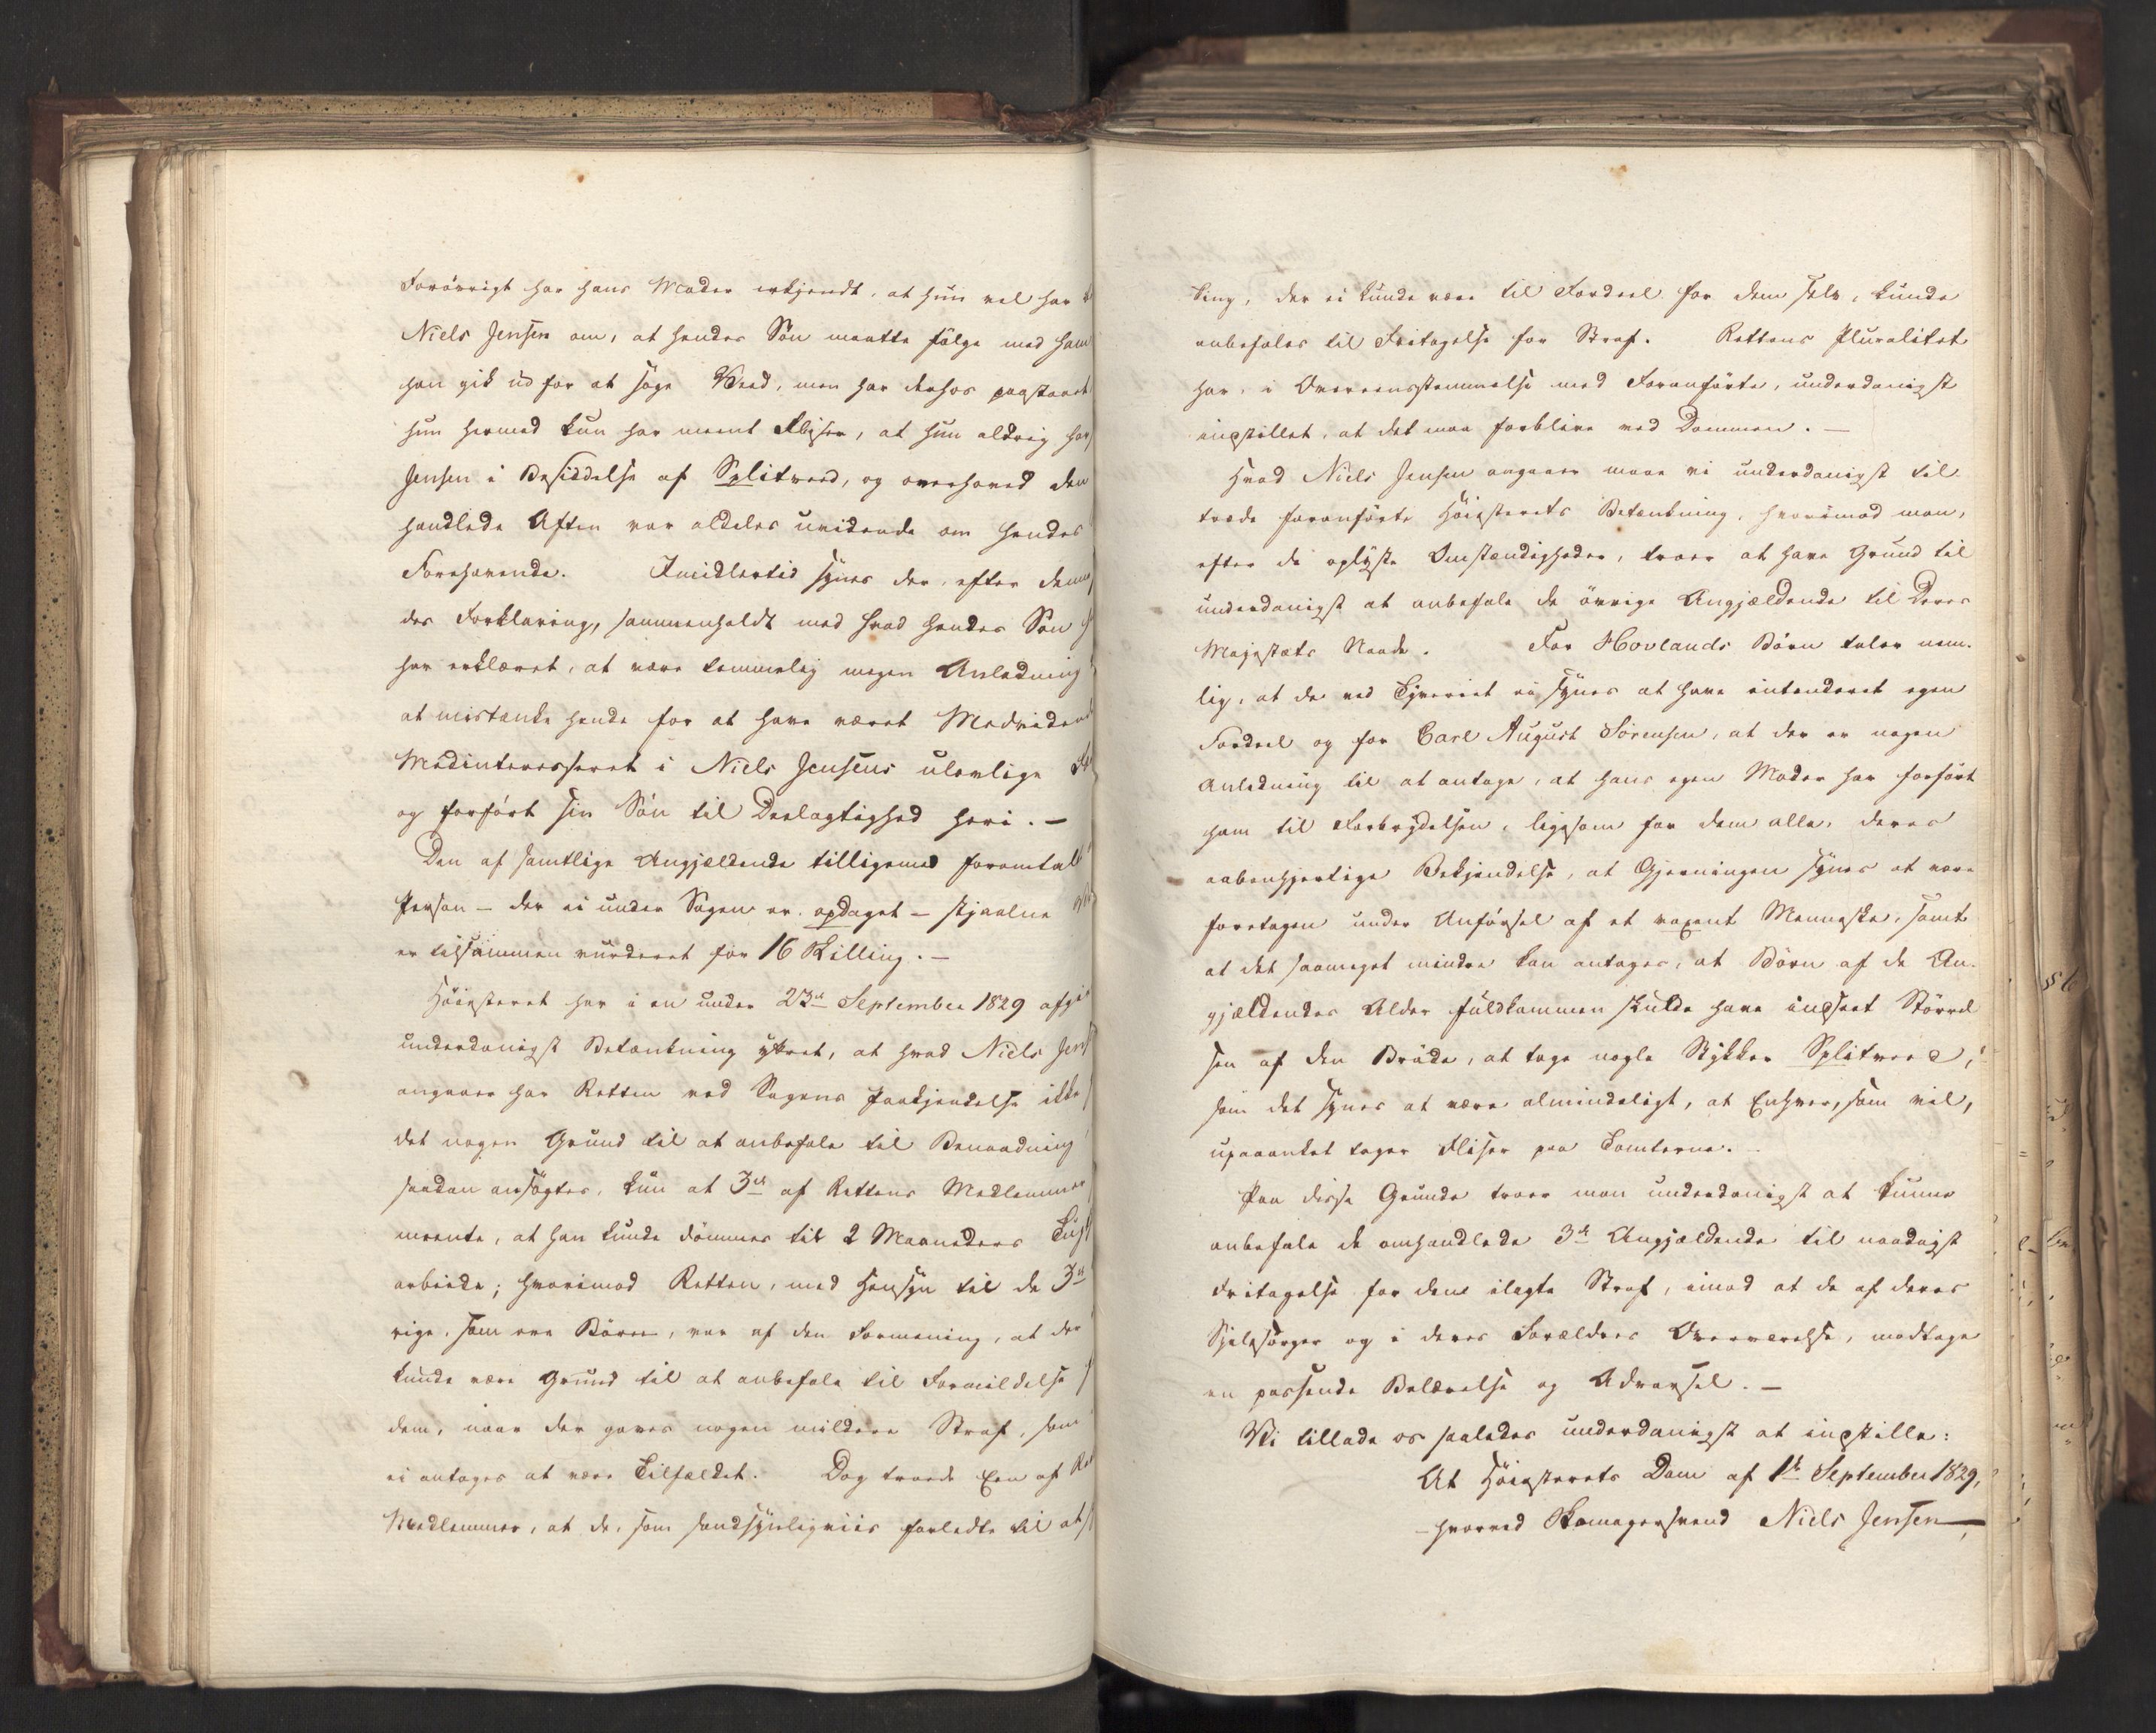 Forövrigt har hans Moder erkjendt, at hun vel har
Niels Jensen om, at hendes Sön maatte fölge med ham
han gik ud for at söge Veed, men har derhos paastaaet
hun hermed kun har meent Fliser, at hun aldrig har
Jensen i Besiddelse af Splitveed, og overhoved den
handlede Aften var aldeles uvidende om hendes
Forehavende. Imidlertid synes der, efter dennes
des Forklaring, sammenholdt med hvad hendes Sön
har erklæret, at være temmelig megen Anledning
at mistænke hende for at have været Medvidende
Medinteresseret i Niels Jensens ulovlige
og forfört sin Sön til Deelagtighed heri. —
Den af samtlige Angjældende tilligemed foromtalt
Person — der ei under Sagen er opdaget — stjaalne
er tilsammen vurderet for 16 Skilling. —
Höiesteret har i en under 23de September 1829 afgiv
underdanigst Betænkning yttret, at hvad Niels Jens
angaaer har Retten ved Sagens Paakjendelse ikke
det nogen Grund til at anbefale til Benaadning
saadan ansögtes, kun at 3de af Rettens Medlemmer
meente, at han kunde dömmes til 2 Maaneders Tugt
arbeide; hvorimod Retten, med Hensyn til de 3de
rige, som ere Börn, var af den Formening, at der
kunde være Grund til at anbefale til Formildelse
dem, naar der gaves nogen mildere Straf, som
ei antages at være Tilfældet. Dog troede Een af Ret
Medlemmer, at de, som sandsynligviis forledte til at
ting, der ei kunde være til Fordeel for dem selv, kunde
anbefales til Fritagelse for Straf. Rettens Pluralitet
har, i Overeensstemmelse med Foranförte, underdanigst
indstillet, at det maa forblive ved Dommen. —
Hvad Niels Jensen angaaer maae vi underdanigst til
træde foranförte Höiesterets Betænkning, hvorimod man,
efter de oplyste Omstændigheder, troer at have Grund til
underdanigst at anbefale de övrige Angjældende til Deres
Majestæts Naade. For Hovlands Börn taler nem-
lig, at de ved Tyveriet ei synes at have intenderet egen
Fordeel og for Carl August Sörensen, at der er nogen
Anledning til at antage, at hans egen Moder har forfört
ham til Forbrydelsen, ligesom for dem alle, deres
aabenhjertige Bekjendelse, at Gjerningen synes at være
foretagen under Anförsel af et voxent Menneske, samt
at det saameget mindre kan antages, at Börn af de An-
gjældendes Alder fuldkommen skulde have indseet Störrel
sen af den Bröde, at tage nogle Stykker Splitveed,
som det synes at være almindeligt, at Enhver, som vil,
upaaanket tager Fliser paa Tomterne. —
Paa disse Grunde troer man underdanigst at kunne
anbefale de omhandlede 3de Angjældende til naadigst
Fritagelse for den ilagte Straf, imod at de af deres
Sjelesörger og i deres Forældres Overværelse, modtage
en passende Belærelse og Advarsel. —
Vi tillade os saaledes underdanigst at indstille:
At Höiesterets Dom af 1ste September 1829,
— hvorved Skomagersvend Niels Jensen —,